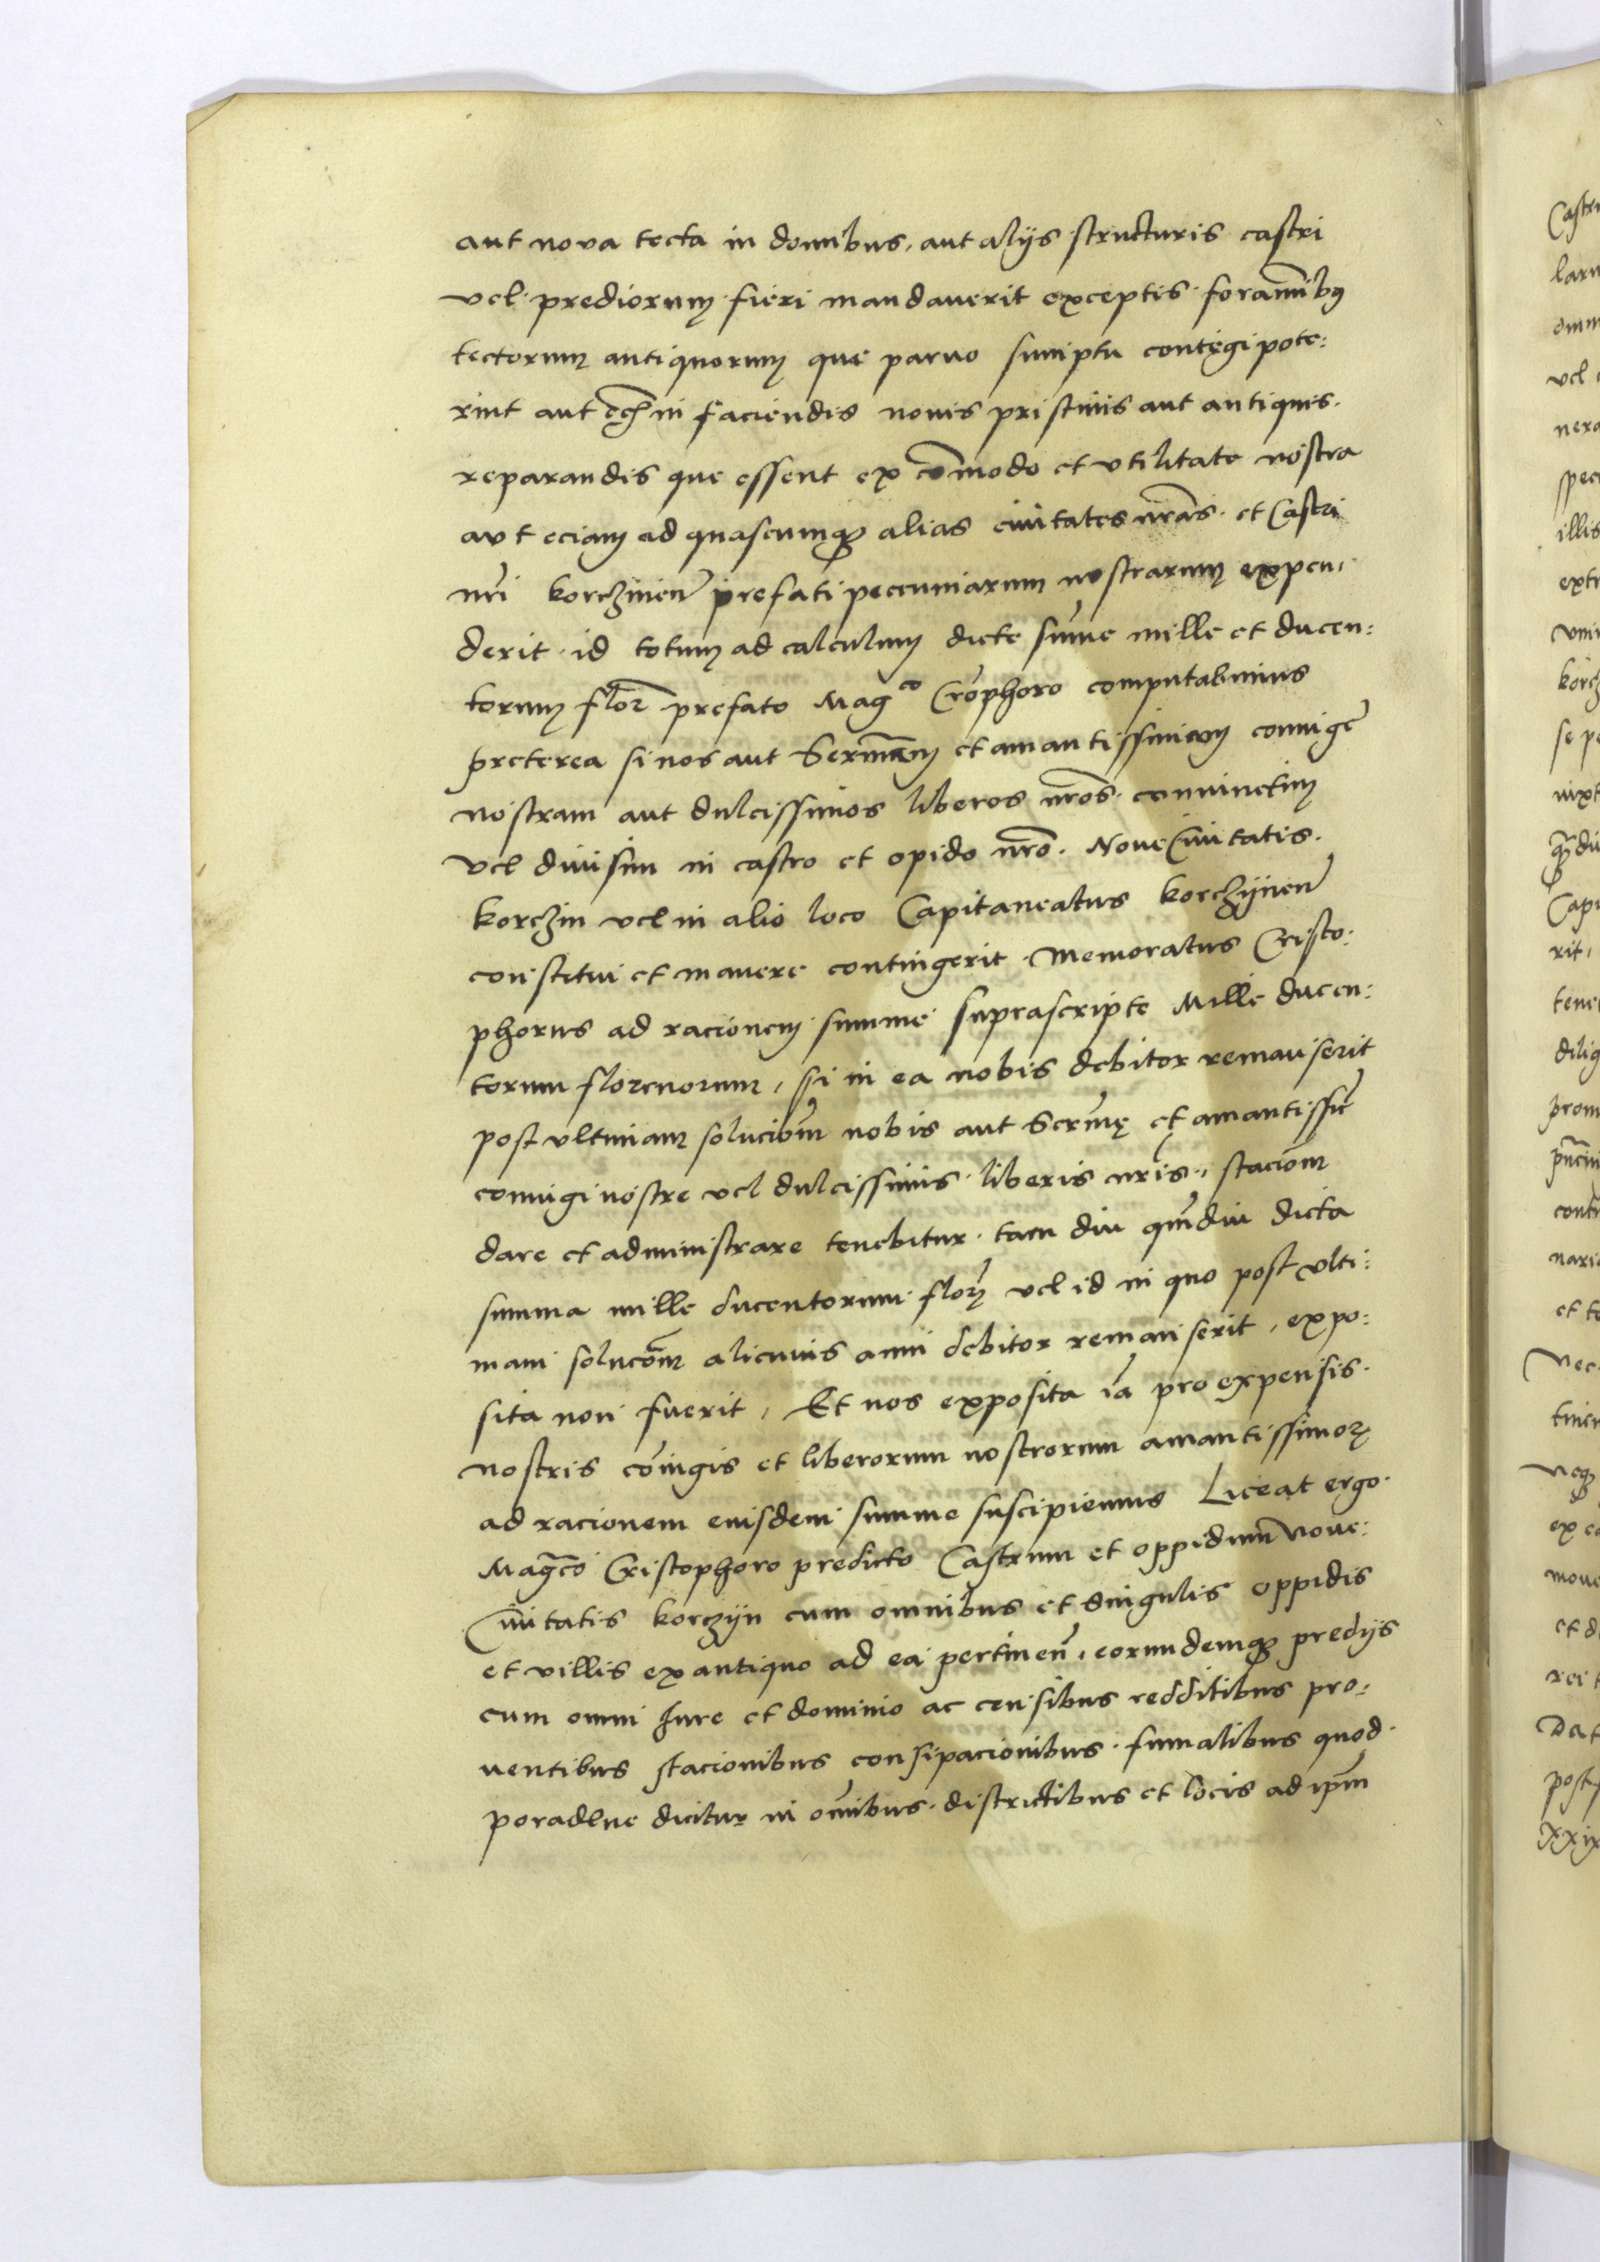 aut nova tecta in domibus, aut alijs structuris castri
vel prediorum fieri mandaverit exceptis foraminibus
tectorum antiquorum que parvo sumptu contegi pote:
rint aut etiam in faciendis novis pristinis aut antiquis
reparandis que essent ex commodo et utilitate nostra
aut eciam ad quascumque alias civitates nras et Castri
nri Korczinien prefati peccuniarum nostrarum expen,
derit id totum ad calculum dicte summe mille et ducen:
torum flor prefato Magco Crophoro computabimus
preterea si nos aut Sermam et amantissimam coniuge
nostram aut dulcissimos liberos nros coniunctim
vel divisim in castro et opido nro Nove Civitatis
Korczin vel in alio loco Capitaneatus Korczijnen
constitui et manere contingerit Memoratus Cristo:
phorus ad racionem summe suprascripte Mille ducen:
torum florenorum, si in ea nobis debitor remanserit
post ultimam solucionem nobis aut Serme et amantissime
coniugi nostre vel dulcissimis liberis nris, stacionem
dare et administrare tenebitur tam diu quamdiu dicta
summa mille ducentorum flor vel id in quo post ulti:
mam solucionem alicuius anni debitor remanserit, expo:
sita non fuerit, Et nos exposita ia pro expensis
nostris coniugis et liberorum nostrorum amantissimor
ad racionem eiusdem summe suscipiemus Liceat ergo
Magco Cristophoro predicto Castrum et oppidum Nove:
Civitatis Korczijn cum omnibus et singulis oppidis
et villis ex antiquo ad ea pertinen, eorumdemque predijs
cum omni Iure et dominio ac censibus redditibus pro:
ventibus stacionibus consipacionibus fumalibus quod
poradlne dicitur in omnibus districtibus et locis ad ipm